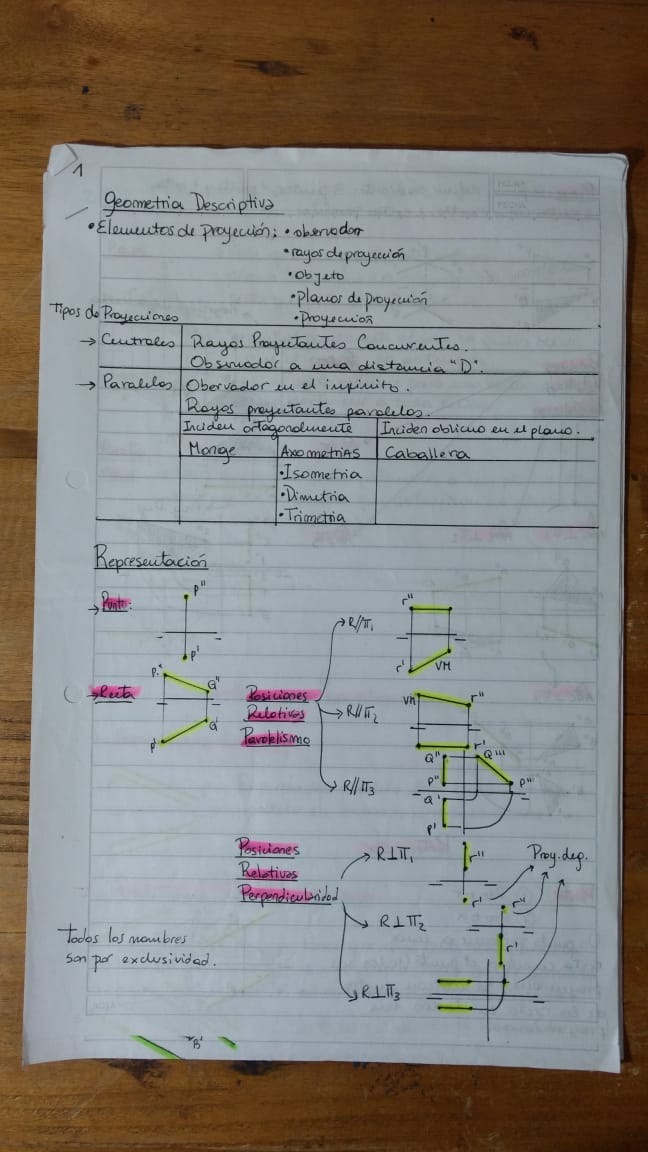 1
Geometria Descriptiva
• Elementos de Proyección: • observador
• rayos de proyección
• Objeto
• planos de proyección
• Proyeccion
Tipos de Proyecciones
→ Centrales Rayos Proyectantes Concurentes.
Observador a una distancia "D".
→ Paralelas Obervador en el infinito.
Rayos proyectantes paralelos.
Inciden ortogonalmente Inciden oblicuo en el plano.
Monge Axometrias Caballera
• Isometria
• Dimetria
• Trimetria
Representación
→ Punto: P"
P'
R//π1 r"
r' VM
→ Recta P" G"
P' G'
Posiciones
Relativas
Paralelismo
R//π2 VM r"
r'
R//π3 Q" Q'''
P" P'''
Q'
P'
Posiciones
Relativas
Perpendicularidad
R⊥π1 r" Proy. deg.
r'
R⊥π2 r"
r'
R⊥π3
Todos los nombres
son por exclusividad.
B'